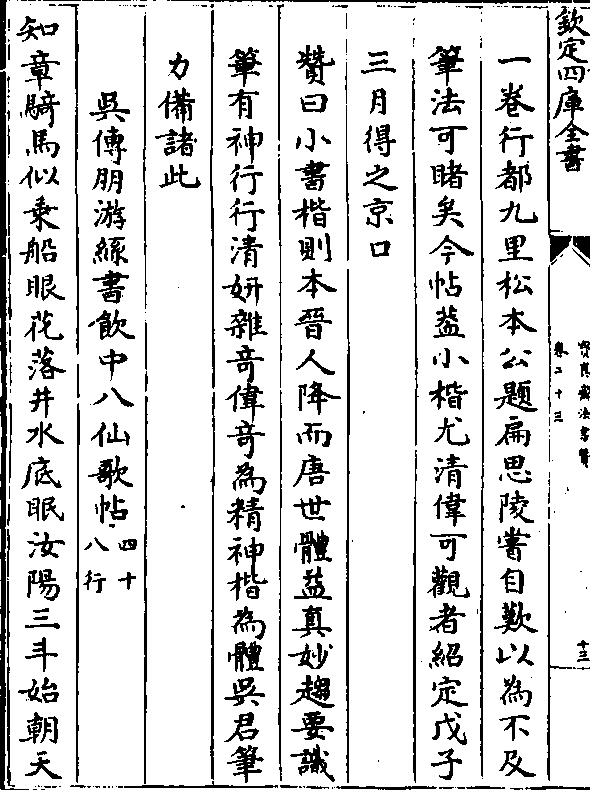 欽定四庫全書
寶真齋法書贊
卷二十三
十三
一卷行都九里松本公題扁思陵嘗自歎以為不及
筆法可睹矣今帖葢小楷尤清偉可觀者紹定戊子
三月得之京口
贊曰小書楷則本晉人降而唐世體益真妙趨要識
筆有神行行清妍雜竒偉竒為精神楷為體吳君筆
力備諸此
吳傳朋游絲書飲中八仙歌帖四十八行
知章騎馬似乗船眼花落井水底眠汝陽三斗始朝天